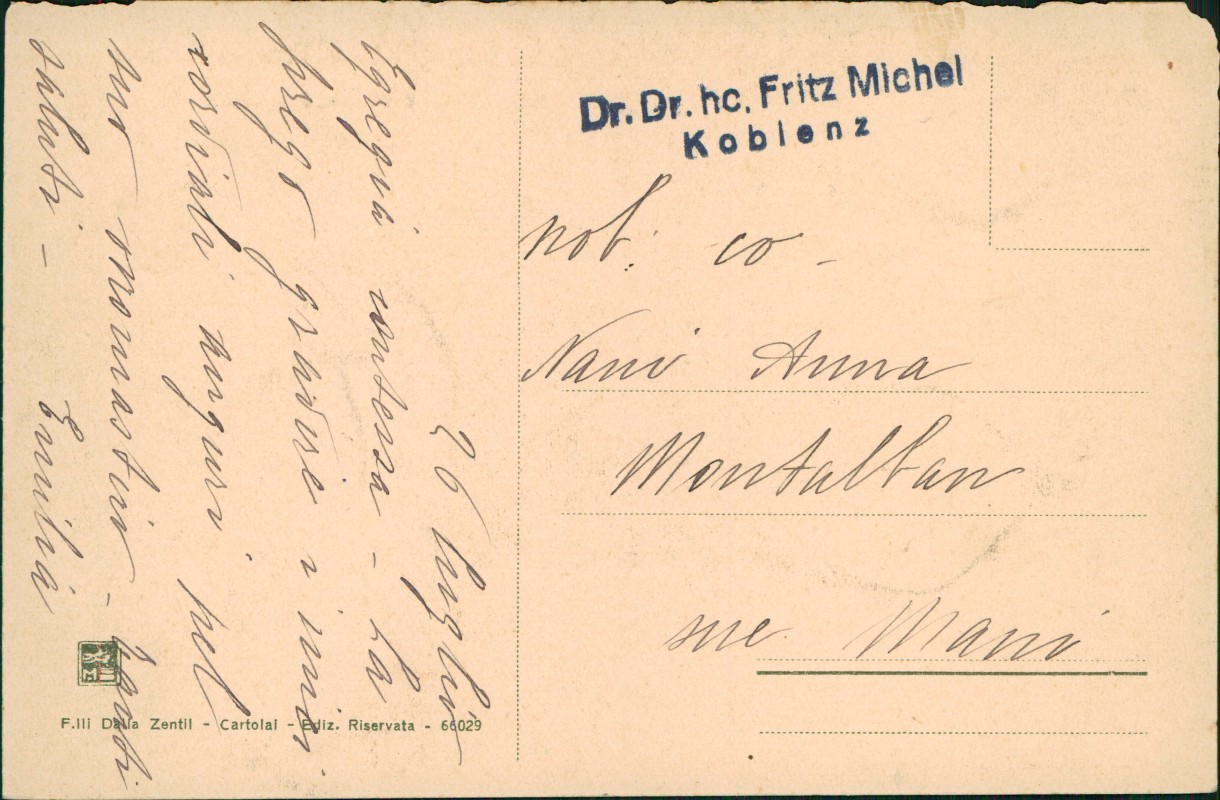 26 luglio
Egregia contessa - La
prego gradire i miei
cordiali auguri pel
suo onomastico - Tanti
saluti - Emilia
Dr. Dr. hc. Fritz Michel
Koblenz
nob: co -
Nani Anna
Montalban
sue Mani
F.lli Dalla Zentil - Cartolai - Ediz. Riservata - 66029